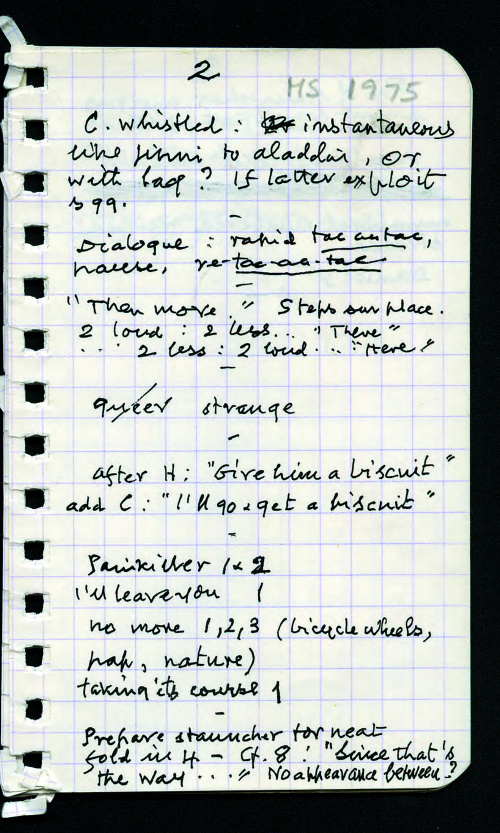 2
MS 1975
C. whistled : instantaneous
like jinni to aladdin, or
with lag? If latter exploit
s 99.
Dialogue : rapid tac au tac,
pause, re-tac-au-tac.
"Then move." Steps sur place.
2 loud : 2 less... "There"
... 2 less : 2 loud ... "Here"
queer strange
after H: "Give him a biscuit"
add C: "I'll go & get a biscuit"
Painkiller 1 & 2
I'll leave you 1
no more 1,2,3 (bicycle wheels,
pap, nature)
taking its course 1
Prepare stauncher for neat
fold in 4 – Cf. 8 : "Since that's
the way ..." No appearance between?